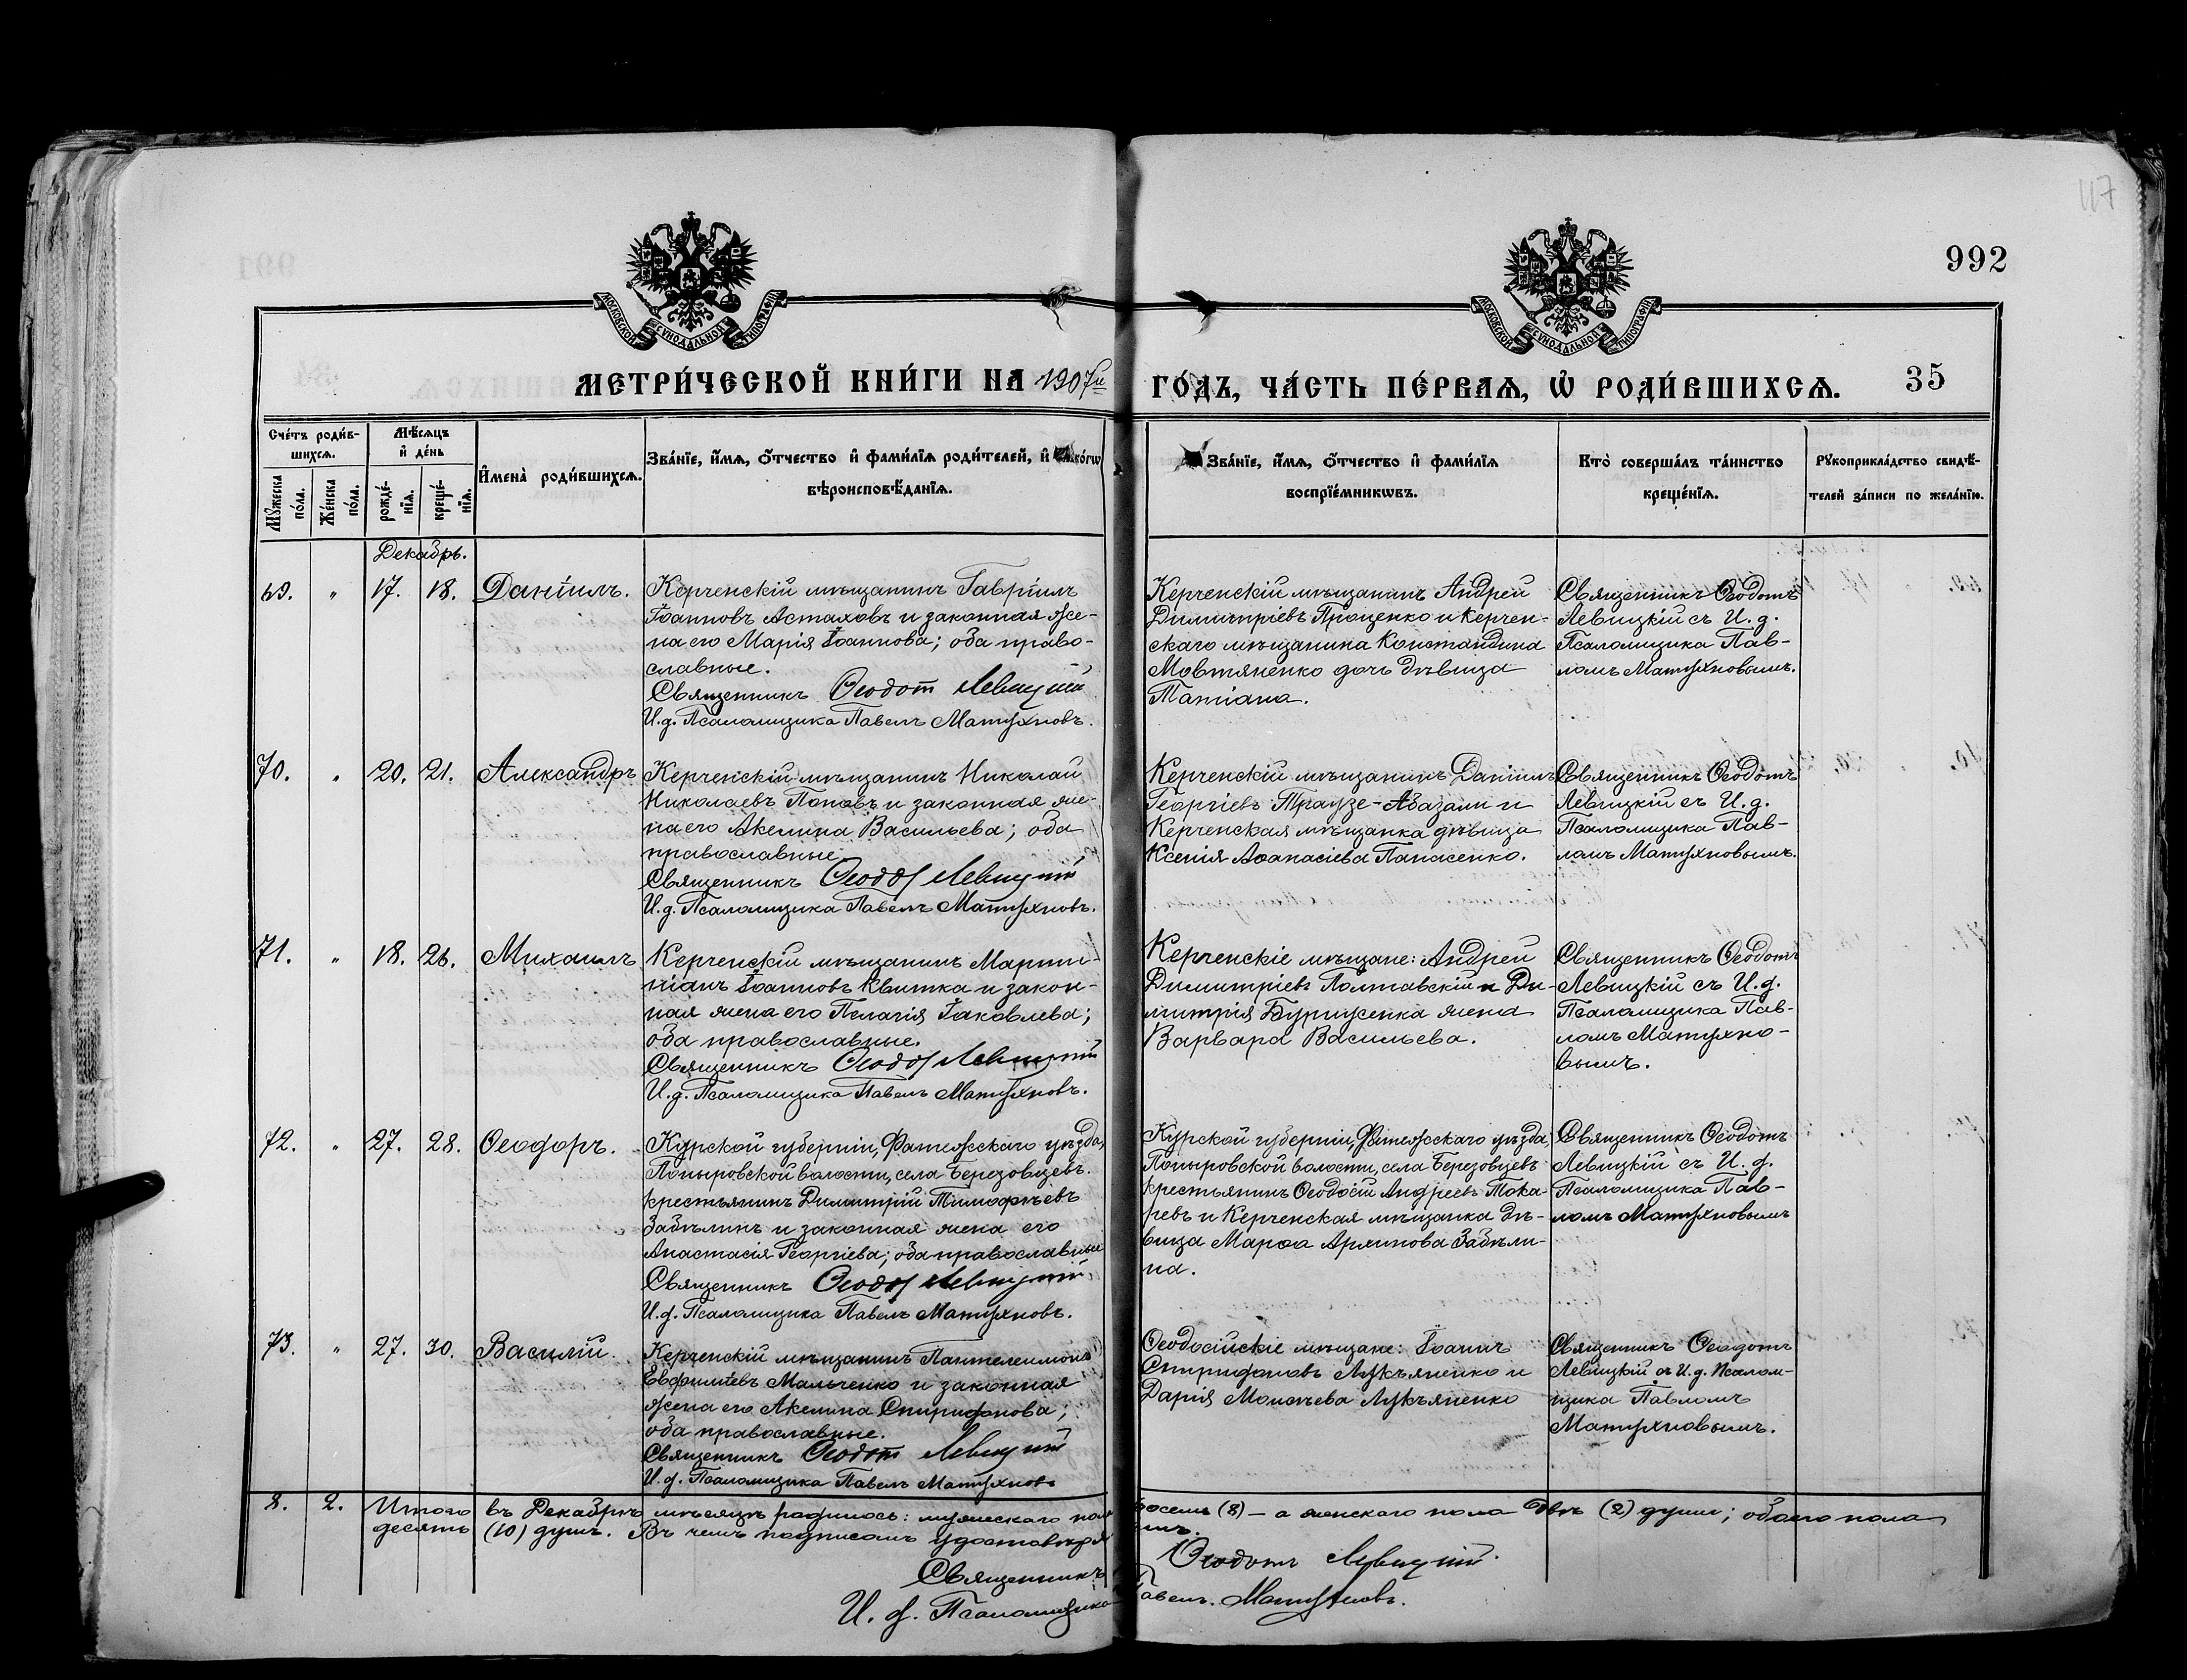 117
992
МОСКОВСКОЙ СѴНОДАЛЬНОЙ ТИПОГРАФІИ
МОСКОВСКОЙ СѴНОДАЛЬНОЙ ТИПОГРАФІИ
МЕТРИ́ЧЕСКОЙ КНИ́ГИ НА 1907й ГО́ДЪ, ЧА́СТЬ ПЕ́РВАѦ, Ѡ҆ РОДИ́ВШИХСѦ. 35
Сче́тъ роди́вшихсѧ.
Мꙋ́жеска по́ла.
Же́нска по́ла.
Мѣ́сѧцъ и҆ де́нь
рожде́нїѧ.
креще́нїѧ.
И҆мена̀ роди́вшихсѧ.
Зва́нїе, и҆́мѧ, ѻ҆́тчество и҆ фами́лїѧ роди́телей, и҆
вѣроисповѣ́данїѧ.
Зва́нїе, и҆́мѧ, ѻ҆́тчество и҆ фами́лїѧ
воспрїе́мникѡвъ.
Кто̀ соверша́лъ та́инство
креще́нїѧ.
Рꙋкоприкла́дство свидѣ́-
телей за́писи по жела́нїю.
Декабрь.
69. " 17. 18. Даніилъ.
Керченскій мѣщанинъ Гавріилъ
Іоанновъ Астаховъ и законная же-
на его Марія Іоаннова; оба право-
славные.
Священникъ Ѳеодот Левицкій
И.д. Псаломщика Павелъ Матухновъ.
Керченскій мѣщанинъ Андрей
Димитріевъ Проценко и Керчен-
скаго мѣщанина Константина
Мовтяненко дочь дѣвица
Татіана.
Священникъ Ѳеодотъ
Левицкій съ И.д.
Псаломщика Пав-
ломъ Матухновымъ.
70. " 20. 21. Александръ
Керченскій мѣщанинъ Николай
Николаевъ Поповъ и законная же-
на его Акилина Васильева; оба
православные.
Священникъ Ѳеодот Левицкій
И.д. Псаломщика Павелъ Матухновъ.
Керченскій мѣщанинъ Даніилъ
Георгіевъ Траузе-Абазали и
Керченская мѣщанка дѣвица
Ксенія Аѳанасіева Панасенко.
Священникъ Ѳеодотъ
Левицкій съ И.д.
Псаломщика Пав-
ломъ Матухновымъ.
71. " 18. 26. Михаилъ
Керченскій мѣщанинъ Марти-
ніанъ Іоанновъ Квитка и закон-
ная жена его Пелагія Іаковлева;
оба православные.
Священникъ Ѳеодот Левицкій
И.д. Псаломщика Павелъ Матухновъ.
Керченскіе мѣщане: Андрей
Димитріевъ Полтавскій и Ди-
митрія жена
Варвара Васильева.
Священникъ Ѳеодотъ
Левицкій съ И.д.
Псаломщика Пав-
ломъ Матухно-
вымъ.
72. " 27. 28. Ѳеодоръ.
Курской губерніи, Фатежскаго уѣзда,
Поныровской волости, села Березовцевъ
крестьянинъ Димитрій Тимоѳѣевъ
Забѣлинъ и законная жена его
Анастасія Георгіева; оба православные
Священникъ Ѳеодот Левицкій
И.д. Псаломщика Павелъ Матухновъ.
Курской губерніи, Фатежскаго уѣзда
Поныровской волости, села Березовцевъ
крестьянинъ Ѳеодосій Андреевъ Тока-
ревъ и Керченская мѣщанка дѣ-
вица Марѳа Архипова Забѣли-
на.
Священникъ Ѳеодотъ
Левицкій съ И.д.
Псаломщика Пав-
ломъ Матухновымъ
73. " 27. 30. Василій.
Керченскій мѣщанинъ Пантелеимонъ
Евфиміевъ Мальченко и законная
жена его Акилина Спиридонова;
оба православные.
Священникъ Ѳеодот Левицкій
И.д. Псаломщика Павелъ Матухновъ
Ѳеодосійскіе мѣщане: Іоаннъ
Спиридоновъ Лукъяненко и
Дарія Моисеева Лукъяненко
Священникъ Ѳеодотъ
Левицкій съ И.д. Псалом-
щика Павломъ
Матухновымъ.
8. 2. Итого въ Декабрѣ мѣсяцѣ родилось: мужескаго пола восемь (8) – а женскаго пола двѣ (2) души; обоего пола
десять (10) душъ. Въ чемъ подписомъ
Священникъ Ѳеодотъ Левицкій.
И.д. Псаломщика Павелъ Матухновъ.